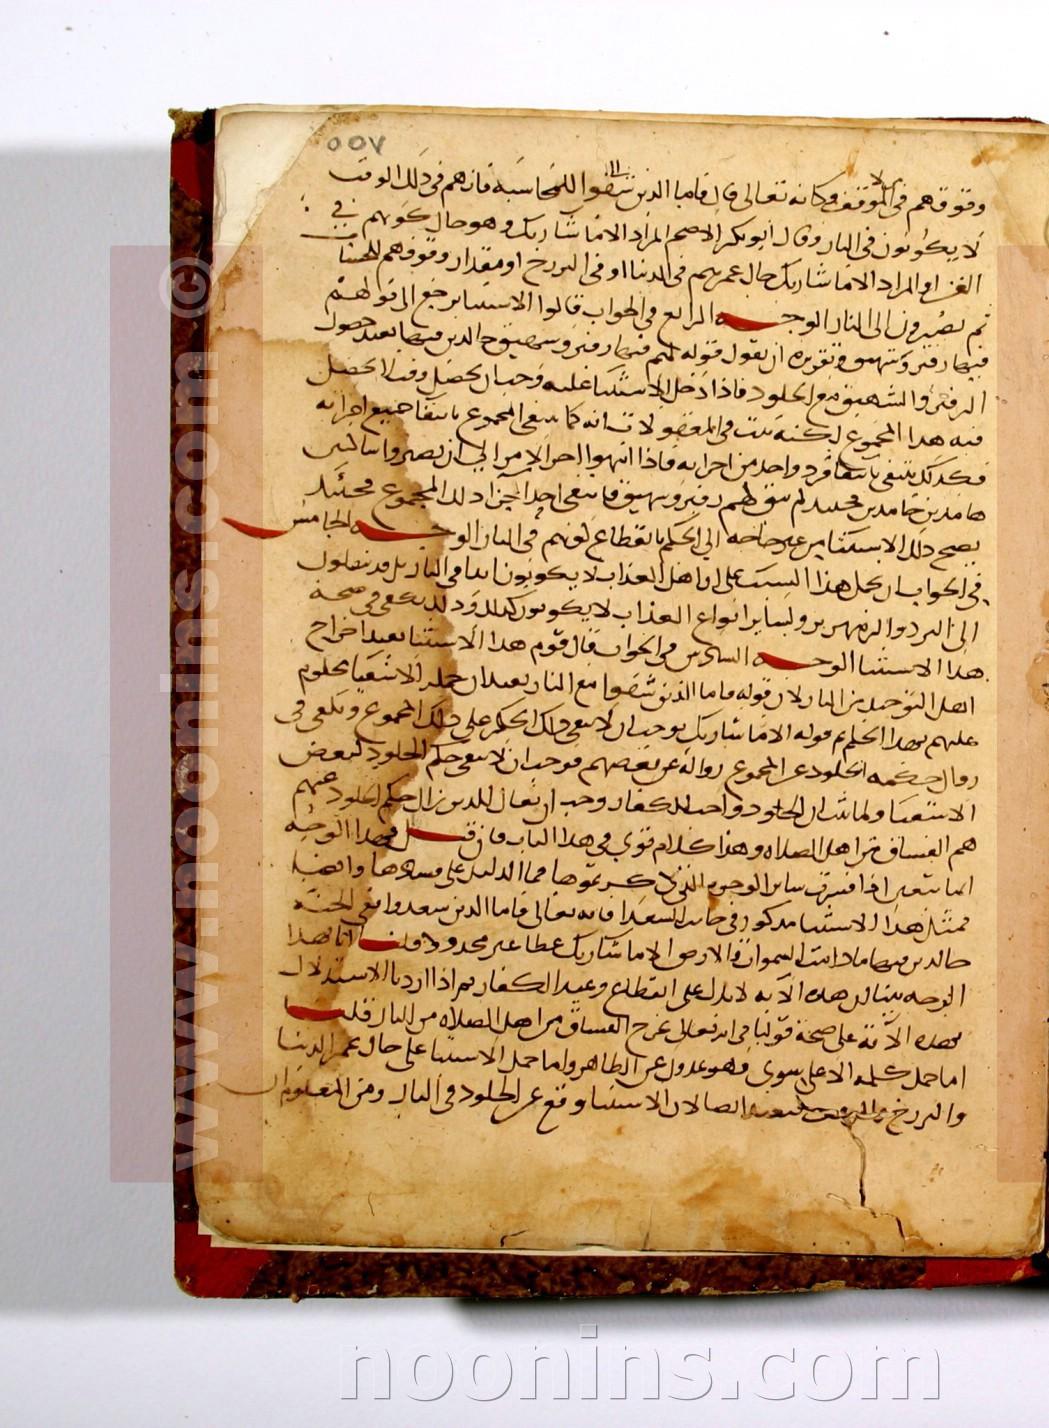 ٥٥٧
وقوفهم فى الموقف وكانه تعالى قال فاما الذين شقوا للمحاسبه فانهم فى ذلك الوقت
لا يكونون فى النار وقال ابو بكر الاصم المراد الا ما شا ربك وهو حال كونهم فى
القبر او المراد الا ما شا ربك حال عمرهم فى الدنيا او فى البرزخ او مقدار وقوفهم للحساب
ثم يصيرون الى النار الوجه الرابع فى الجواب قالوا الاستثنا يرجع الى قولهم
فيها زفير وشهيق وتقريره ان نقول قوله لهم فيها زفير وشهيق خالدين فيها يفيد حصول
الزفير والشهيق مع الخلود فاذا دخل الاستثنا عليه وجب ان يحصل وقت لا يحصل
فيه هذا المجموع لكنه ثبت فى المعقولات انه كما ينتفى المجموع بانتفا جميع اجزايه
فكذلك ينتفى بانتفا فرد واحد من اجزايه فاذا انتهوا اخر الامر الى ان يصيروا ساكنين
هامدين خامدين فحينيذ لم يبق لهم زفير وشهيق فانتفى احد اجزآ ذلك المجموع فحينئذ
يصح ذلك الاستثنا من غير حاجه الى الحكم بانقطاع كونهم فى النار الوجه الخامس
فى الجواب ان يحمل هذا السبب على ان اهل العذاب لا يكونون ابدا فى النار بل قد ينقلون
الى البرد والزمهرير وساير انواع العذاب لا يكونون كذلك وذلك يكفى فى صحة
هذا الاستثنا الوجه السادس فى الجواب قال قوم هذا الاستثنا يفيد اخراج
اهل التوحيد من النار لان قوله فاما الذين شقوا ففى النار يفيد ان جملة الاشقيا محكوم
عليهم بهذا الحكم ثم قوله الا ما شا ربك يوجب ان لا يبقى ذلك الحكم على ذلك المجموع ويكفى فى
زوال حكم الخلود عن المجموع زواله عن بعضهم فوجب ان لا يبقى حكم الخلود لبعض
الاشقيا ولما ثبت ان الخلود واجب للكفار وجب ان يقال الذين زال حكم الخلود عنهم
هم الفساق من اهل الصلاه وهذا كلام قوى فى هذا الباب فان قيل فهذا الوجه
انما يتعين اذا فسدت ساير الوجوه التى ذكرتموها فما الدليل على فسادها وايضا
فمثل هذا الاستثنا مذكور فى جانب السعدا فانه تعالى قال فاما الذين سعدوا ففى الجنة
خالدين فيها ما دامت السموات والارض الا ما شا ربك عطا غير مجدود قلنا انا بهذا
الوجه بينا ان هذه الآيه لا تدل على انقطاع وعيد الكفار ثم اذا اردنا الاستدلال
بهذه الآية على صحة قولنا فى انه تعالى يخرج الفساق من اهل الصلاه من النار قلنا
اما حمل كلمه الا على سوى فهو عدول عن الظاهر واما حمل الاستثنا على حال عمر الدنيا
والبرزخ والموقف فبعيد ايضا لان الاستثنا وقع عن الخلود فى النار ومن المعلوم ان
www.noonins.com ©
noonins.com